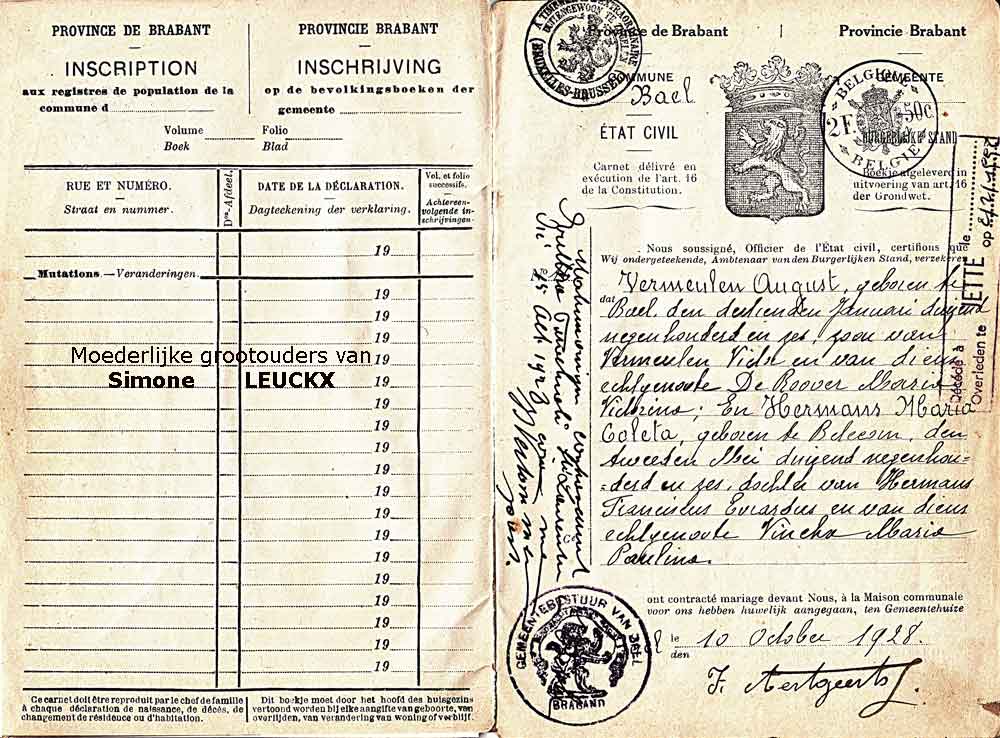 PROVINCE DE BRABANT
INSCRIPTION
aux registres de population de la
commune d
PROVINCIE BRABANT
INSCHRIJVING
op de bevolkingsboeken der
gemeente
Volume Folio
Boek Blad
RUE ET NUMÉRO.
Straat en nummer.
Dre-Afdeel.
DATE DE LA DÉCLARATION.
Dagteekening der verklaring.
Vol. et folio
successifs.
Achtereen-
volgende in-
schrijvingen.
19
Mutations.—Veranderingen.
19
19
19
19
Moederlijke grootouders van
Simone LEUCKX
19
19
19
19
19
19
19
19
19
19
19
19
19
19
Ce carnet doit être reproduit par le chef de famille
à chaque déclaration de naissance, de décès, de
changement de résidence ou d'habitation.
Dit boekje moet door het hoofd des huisgezins
vertoond worden bij elke aangifte van geboorte, van
overlijden, van verandering van woning of verblijf.
Province de Brabant
Provincie Brabant
BRUXELLES-BRUSSEL
COMMUNE
Bael
ÉTAT CIVIL
Carnet délivré en
exécution de l'art. 16
de la Constitution.
GEMEENTE
BURGERLIJKE STAND
Boekje afgeleverd in
uitvoering van art. 16
der Grondwet.
BELGIQUE
2F. 50c.
BELGIË
Décédé à le
Overleden te op
Nous soussigné, Officier de l'État civil, certifions que
Wij ondergeteekende, Ambtenaar van den Burgerlijken Stand, verzekeren
dat Vermeulen August, geboren te
Bael, den dertienden Januari duizend
negenhonderd en zes, zoon van
Vermeulen Victor en van diens
echtgenoote De Roover Maria
Victorina; En Hermans Maria
Coleta, geboren te Betecom, den
tweeden Mei duizend negenhon-
derd en zes, dochter van Hermans
Franciscus Evrardus en van diens
echtgenoote Vinckx Maria
Paulina.
ont contracté mariage devant Nous, à la Maison communale
voor ons hebben huwelijk aangegaan, ten Gemeentehuize
le
den 10 October 1928.
GEMEENTEBESTUUR VAN BAEL
BRABAND